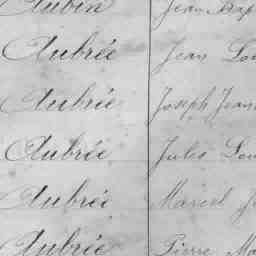 Aubin Jean Bap
Aubrée Jean Lou
Aubrée Joseph Jean
Aubrée Jules Lou
Aubrée Marcel J
Aubrée Pierre Ma